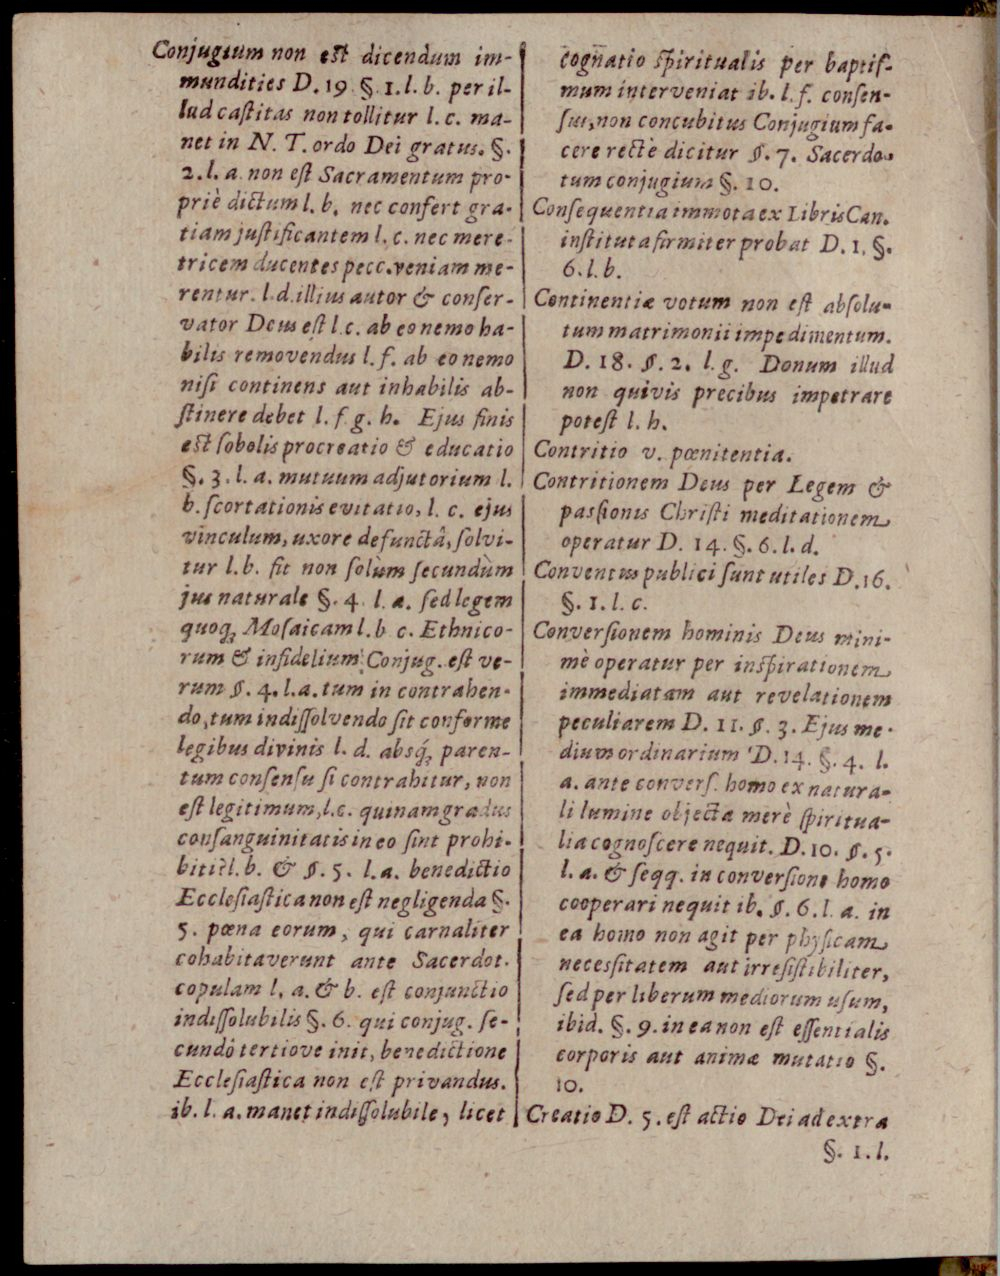 Conjugium non est dicendum im-
mundities D. 19 §. 1. l. b. per il-
lud castitas non tollitur l. c. ma-
net in N. T. ordo Dei gratus. §.
2. l. a. non est Sacramentum pro-
priè dictum l. b. nec confert gra-
tiam justificantem l. c. nec mere-
tricem ducentes pecc. veniam me-
rentur. l. d. illius autor & conser-
vator Deus est l. c. ab eo nemo ha-
bilis removendus l. f. ab eo nemo
nisi continens aut inhabilis ab-
stinere debet l. f. g. h. Ejus finis
est sobolis procreatio & educatio
§. 3. l. a. mutuum adjutorium l.
b. scortationis evitatio, l. c. ejus
vinculum, uxore defunctâ, solvi-
tur l. b. fit non solùm secundùm
jus naturale §. 4. l. a. sed legem
quoq; Mosaicam l. b c. Ethnico-
rum & infidelium Conjug. est ve-
rum §. 4. l. a. tum in contrahen-
do, tum in dissolvendo sit conforme
legibus divinis l. d. absq; paren-
tum consensu si contrahitur, non
est legitimum, l. c. quinam gradus
consanguinitatis in eo sint prohi-
biti? l. b. & §. 5. l. a. benedictio
Ecclesiastica non est negligenda §.
5. pœna eorum, qui carnaliter
cohabitaverunt ante Sacerdot.
copulam l. a. & b. est conjunctio
indissolubilis §. 6. qui conjug. se-
cundò tertiove init, benedictione
Ecclesiastica non est privandus.
ib. l. a. manet indissolubile, licet
cognatio spiritualis per baptis-
mum interveniat ib. l. f. consen-
sus, non concubitus Conjugium fa-
cere rectè dicitur §. 7. Sacerdo-
tum conjugium §. 10.
Consequentia immota ex Libris Can.
instituta firmiter probat D. 1. §.
6. l. b.
Continentiæ votum non est absolu-
tum matrimonii impedimentum.
D. 18. §. 2. l. g. Donum illud
non quivis precibus impetrare
potest l. h.
Contritio v. pœnitentia.
Contritionem Deus per Legem &
passionis Christi meditationem
operatur D. 14. §. 6. l. d.
Conventus publici sunt utiles D. 16.
§. 1. l. c.
Conversionem hominis Deus mini-
mè operatur per inspirationem
immediatam aut revelationem
peculiarem D. 11. §. 3. Ejus me-
dium ordinarium D. 14. §. 4. l.
a. ante convers. homo ex natura-
li lumine objecta merè spiritua-
lia cognoscere nequit. D. 10. §. 5.
l. a. & seqq. in conversione homo
cooperari nequit ib. §. 6. l. a. in
ea homo non agit per physicam
necessitatem aut irresistibiliter,
sed per liberum mediorum usum,
ibid. §. 9. in ea non est essentialis
corporis aut animæ mutatio §.
10.
Creatio D. 5. est actio Dei ad extra
§. 1. l.